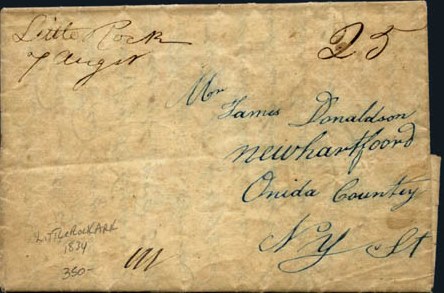 Little Rock
7 August
25
Mr
James Donaldson
newhartfoord
Onida Countey
N Y St
LITTLE ROCK ARK
1834
350-